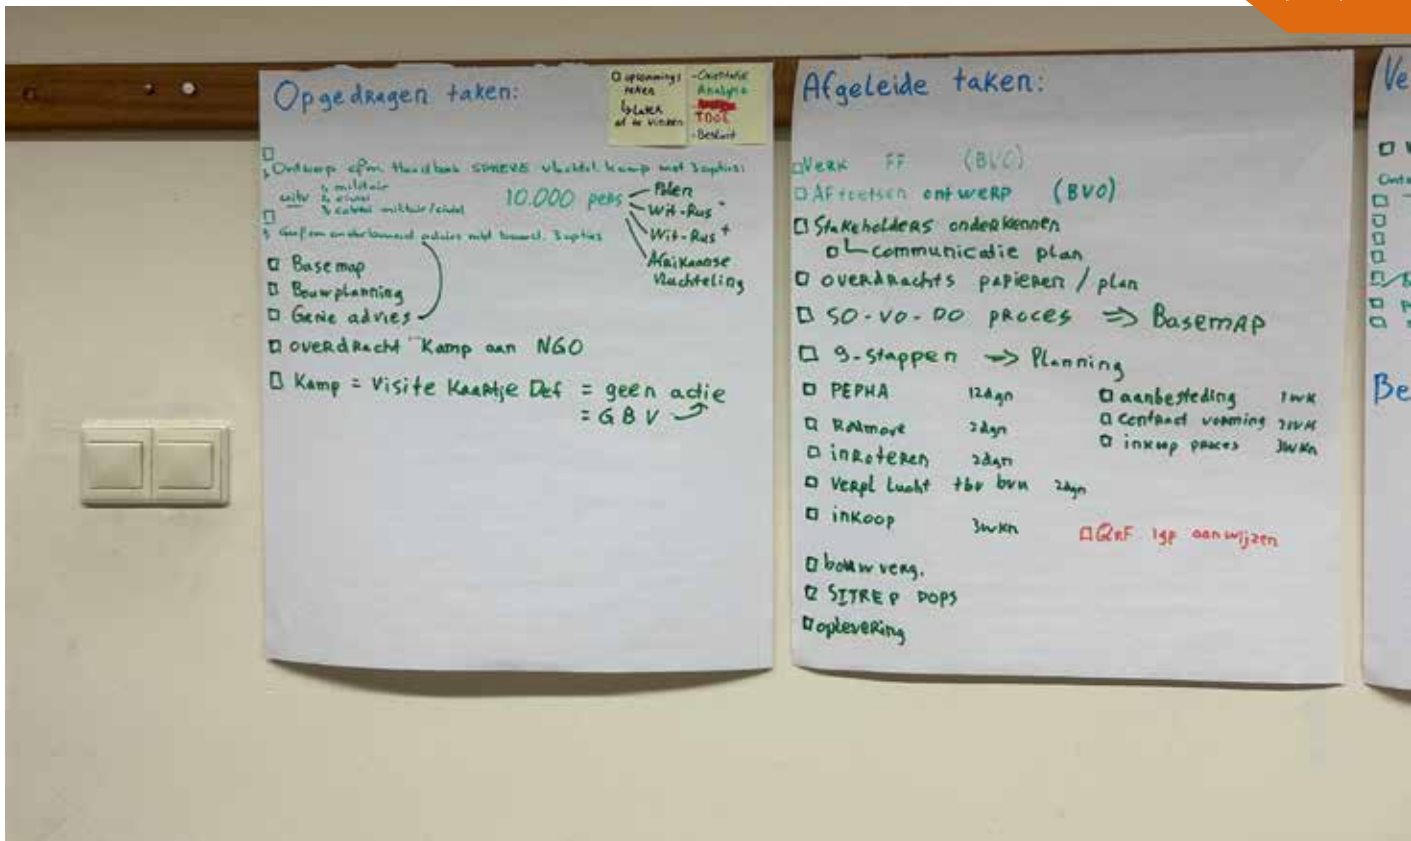 Opgedragen taken:
opnemings
taken
↳ Later
af te vinken
- Overstake
Analyse
- TOOC
- Besluit
Ontwerp cfm Handboek SPHERE vluchtel. kamp met 3 opties:
↳ militair
uitv ↳ civiel
↳ combi militair/civiel
10.000 pers
Polen
Wit-Rus -
Wit-Rus +
Afrikaanse
vluchteling
↳ Geef een onderbouwd advies mbt bovenst. 3 opties
□ Basemap
□ Bouwplanning
□ Genie advies
□ overdracht Kamp aan NGO
□ Kamp = Visite Kaartje Def = geen actie
= GBV
Afgeleide taken:
□ Verk FF (BVO)
□ Aftoetsen ontwerp (BVO)
□ Stakeholders onderkennen
□ communicatie plan
□ overdrachts papieren / plan
□ SO-VO-DO proces => Basemap
□ 9-stappen => Planning
□ PEPHA 12dgn
□ aanbesteding 1wk
□ Rolmove 2dgn
□ contract vorming 2wk
□ inroteren 2dgn
□ inkoop proces 3wkn
□ Verpl Lucht tbv bvu 2dgn
□ inkoop 3wkn
□ QRF igp aanwijzen
□ bouw verg.
□ SITREP DOPS
□ oplevering
Ve
Be